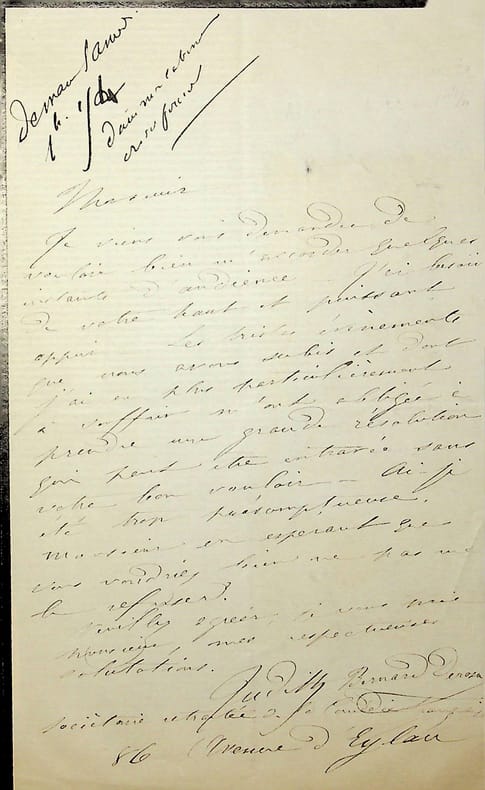 demain Samedi
1 h. 1/2
dans mon cabinet
Monsieur
Je viens vous demander de
vouloir bien m'accorder quelques
instants d'audience – J'ai besoin
de votre haut et puissant
appui – Les tristes évènements
que nous avons subis et dont
j'ai eu plus particulièrement
à souffrir m'ont obligée à
prendre une grande résolution
qui peut être entravée sans
votre bon vouloir – Ai-je
été trop présomptueuse,
Monsieur en esperant que
vous voudriez bien ne pas me
le refuser?
Veuillez agréer, Monsieur,
mes respectueuses
salutations.
Judith Bernard Derosne
Sociétaire retraitée de la Comédie française
86 Avenue d'Eylau